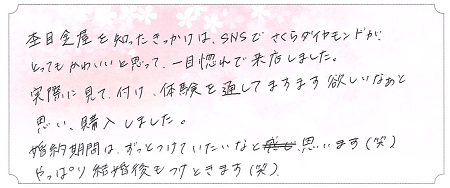 杢目金屋を知ったきっかけは、SNSでさくらダイヤモンドが、
とってもかわいいと思って、一目惚れで来店しました。
実際に見て、付け、体験を通してますます欲しいなぁと
思い、購入しました。
婚約期間は、ずっとつけていたいなと思います(笑)
やっぱり結婚後もつけときます(笑)